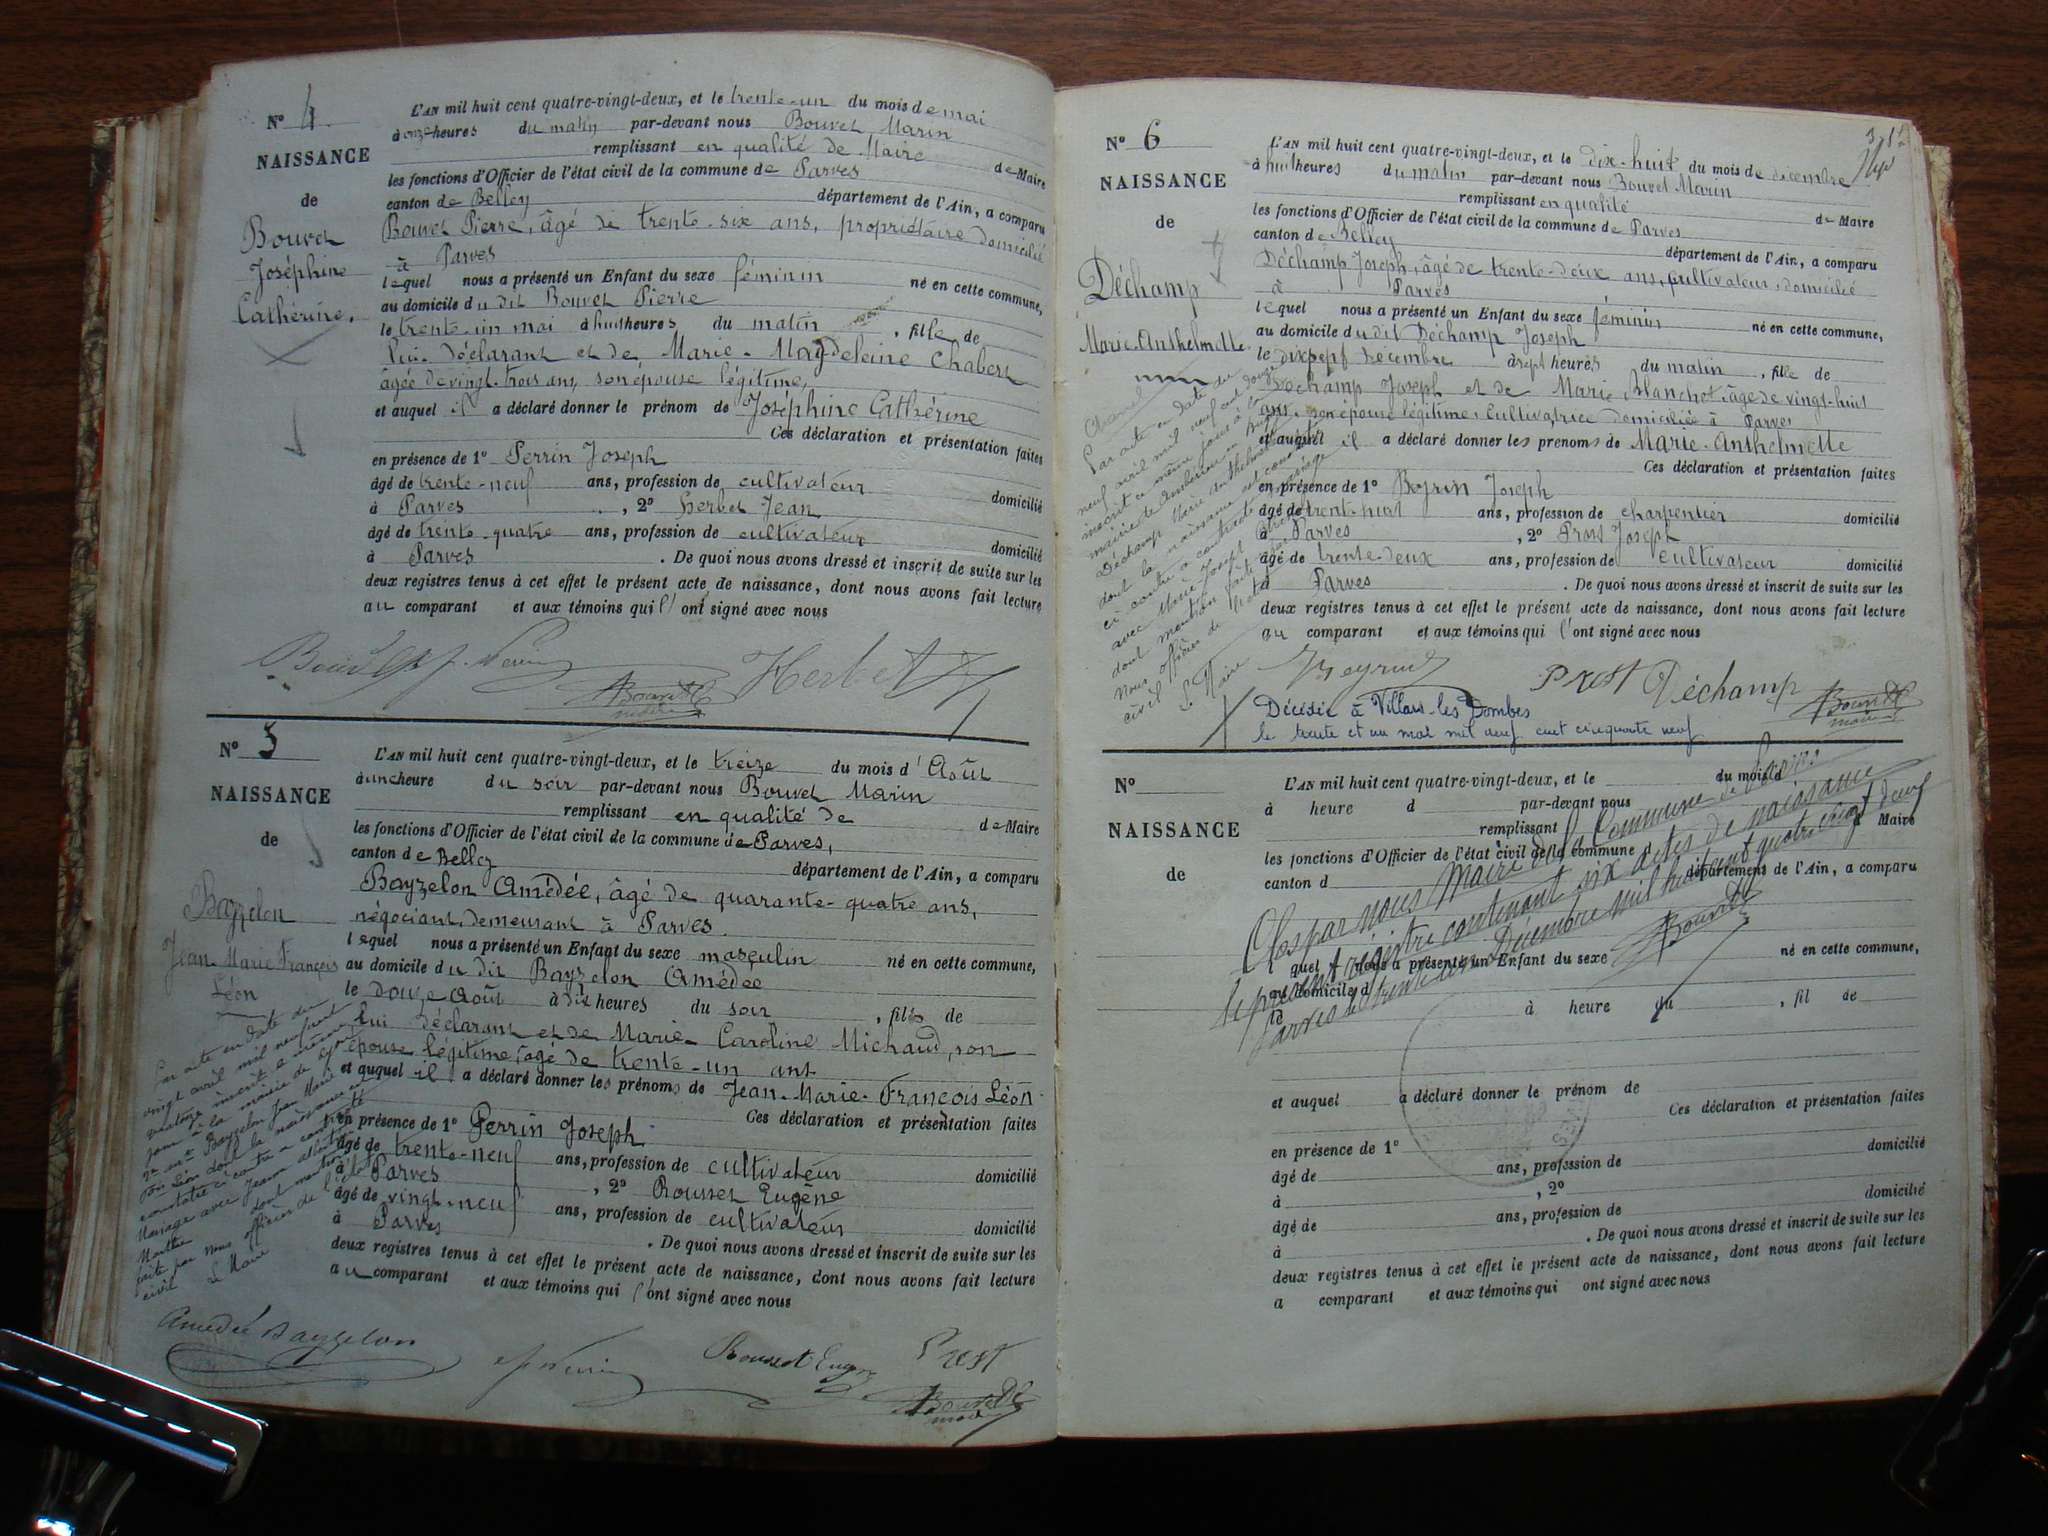 N° 4
NAISSANCE
de
Bouvet
Joséphine
Catherine.
L'AN mil huit cent quatre-vingt-deux, et le trente-un du mois de mai
à onze heures du matin par-devant nous Bouvet Marin
remplissant en qualité de Maire
les fonctions d'Officier de l'état civil de la commune de Parves de Maire
canton de Belley département de l'Ain, a comparu
Bouvet Pierre, âgé de trente-six ans, propriétaire domicilié
à Parves
lequel nous a présenté un Enfant du sexe féminin né en cette commune,
au domicile du dit Bouvet Pierre
le trente-un mai à huit heures du matin, fille de
lui déclarant et de Marie-Magdeleine Chabert
âgée de vingt-trois ans, son épouse légitime,
et auquel il a déclaré donner le prénom de Joséphine Cathérine
Ces déclaration et présentation faites
en présence de 1° Perrin Joseph
âgé de trente-neuf ans, profession de cultivateur domicilié
à Parves, 2° Herbet Jean
âgé de trente-quatre ans, profession de cultivateur domicilié
à Parves. De quoi nous avons dressé et inscrit de suite sur les
deux registres tenus à cet effet le présent acte de naissance, dont nous avons fait lecture
au comparant et aux témoins qui l'ont signé avec nous
Herbet
N° 5
NAISSANCE
de
Bayzelon
Jean-Marie François
Léon
L'AN mil huit cent quatre-vingt-deux, et le treize du mois d'Août
à une heure du soir par-devant nous Bouvet Marin
remplissant en qualité de
les fonctions d'Officier de l'état civil de la commune de Parves, de Maire
canton de Belley département de l'Ain, a comparu
Bayzelon Amédée, âgé de quarante-quatre ans,
négociant, demeurant à Parves.
lequel nous a présenté un Enfant du sexe masculin né en cette commune,
au domicile du dit Bayzelon Amédée
le douze Août à dix heures du soir, fils de
lui déclarant et de Marie-Caroline Michaud, son
épouse légitime, âgé de trente-un ans
et auquel il a déclaré donner les prénoms de Jean-Marie-François Léon
Ces déclaration et présentation faites
en présence de 1° Perrin Joseph
âgé de trente-neuf ans, profession de cultivateur domicilié
à Parves, 2° Rousset Eugène
âgé de vingt-neuf ans, profession de cultivateur domicilié
à Parves. De quoi nous avons dressé et inscrit de suite sur les
deux registres tenus à cet effet le présent acte de naissance, dont nous avons fait lecture
au comparant et aux témoins qui l'ont signé avec nous
Par acte en date du
vingt avril mil neuf cent
quatorze inscrit le même
jour à la mairie de
Bayzelon Jean Marie
Léon dont la naissance est
constatée ci-contre a contracté
Mariage avec Jeanne
Marthe dont mention
faite par nous officier de l'état
civil Le Maire
Amédée Bayzelon
Rousset Eugène
Prost
N° 6
NAISSANCE
de
Déchamp
Marie-Anthelmette
L'AN mil huit cent quatre-vingt-deux, et le dix-huit du mois de décembre
à huit heures du matin par-devant nous Bouvet Marin
remplissant en qualité
les fonctions d'Officier de l'état civil de la commune de Parves de Maire
canton de Belley département de l'Ain, a comparu
Déchamp Joseph, âgé de trente-deux ans, cultivateur, domicilié
à Parves
lequel nous a présenté un Enfant du sexe féminin né en cette commune,
au domicile du dit Déchamp Joseph
le dix sept décembre à sept heures du matin, fille de
Déchamp Joseph et de Marie Blanchet, âgée de vingt-huit
ans, son épouse légitime, cultivatrice domiciliée à Parves
et auquel il a déclaré donner les prénoms de Marie-Anthelmette
Ces déclaration et présentation faites
en présence de 1° Joseph
âgé de trent-huit ans, profession de charpentier domicilié
à Parves, 2° Prost Joseph
âgé de trente-deux ans, profession de cultivateur domicilié
à Parves. De quoi nous avons dressé et inscrit de suite sur les
deux registres tenus à cet effet le présent acte de naissance, dont nous avons fait lecture
au comparant et aux témoins qui l'ont signé avec nous
Par acte en date du
neuf avril mil neuf cent douze
inscrit ce même jour à la
mairie de Ambérieu en Bugey
Déchamp Marie Anthelmette
dont la naissance est constatée
ci-contre a contracté mariage
avec
dont mention faite par
Nous officier de l'état
civil Le Maire
Prost Déchamp
Décédée à Villars-les-Dombes
le trente et un mai mil neuf cent cinquante neuf
N°
NAISSANCE
de
L'AN mil huit cent quatre-vingt-deux, et le du mois d
à heure d par-devant nous
remplissant
les fonctions d'Officier de l'état civil de la commune d Maire
canton d département de l'Ain, a comparu
Clos par nous Maire de la Commune de Parves
le présent régistre contenant six actes de naissance
Parves le trente un Décembre mil huit cent quatre vingt deux
quel nous a présenté un Enfant du sexe né en cette commune,
au domicile d
le à heure du, fil de
et auquel a déclaré donner le prénom de
Ces déclaration et présentation faites
en présence de 1°
âgé de ans, profession de domicilié
à, 2°
âgé de ans, profession de domicilié
à. De quoi nous avons dressé et inscrit de suite sur les
deux registres tenus à cet effet le présent acte de naissance, dont nous avons fait lecture
a comparant et aux témoins qui ont signé avec nous